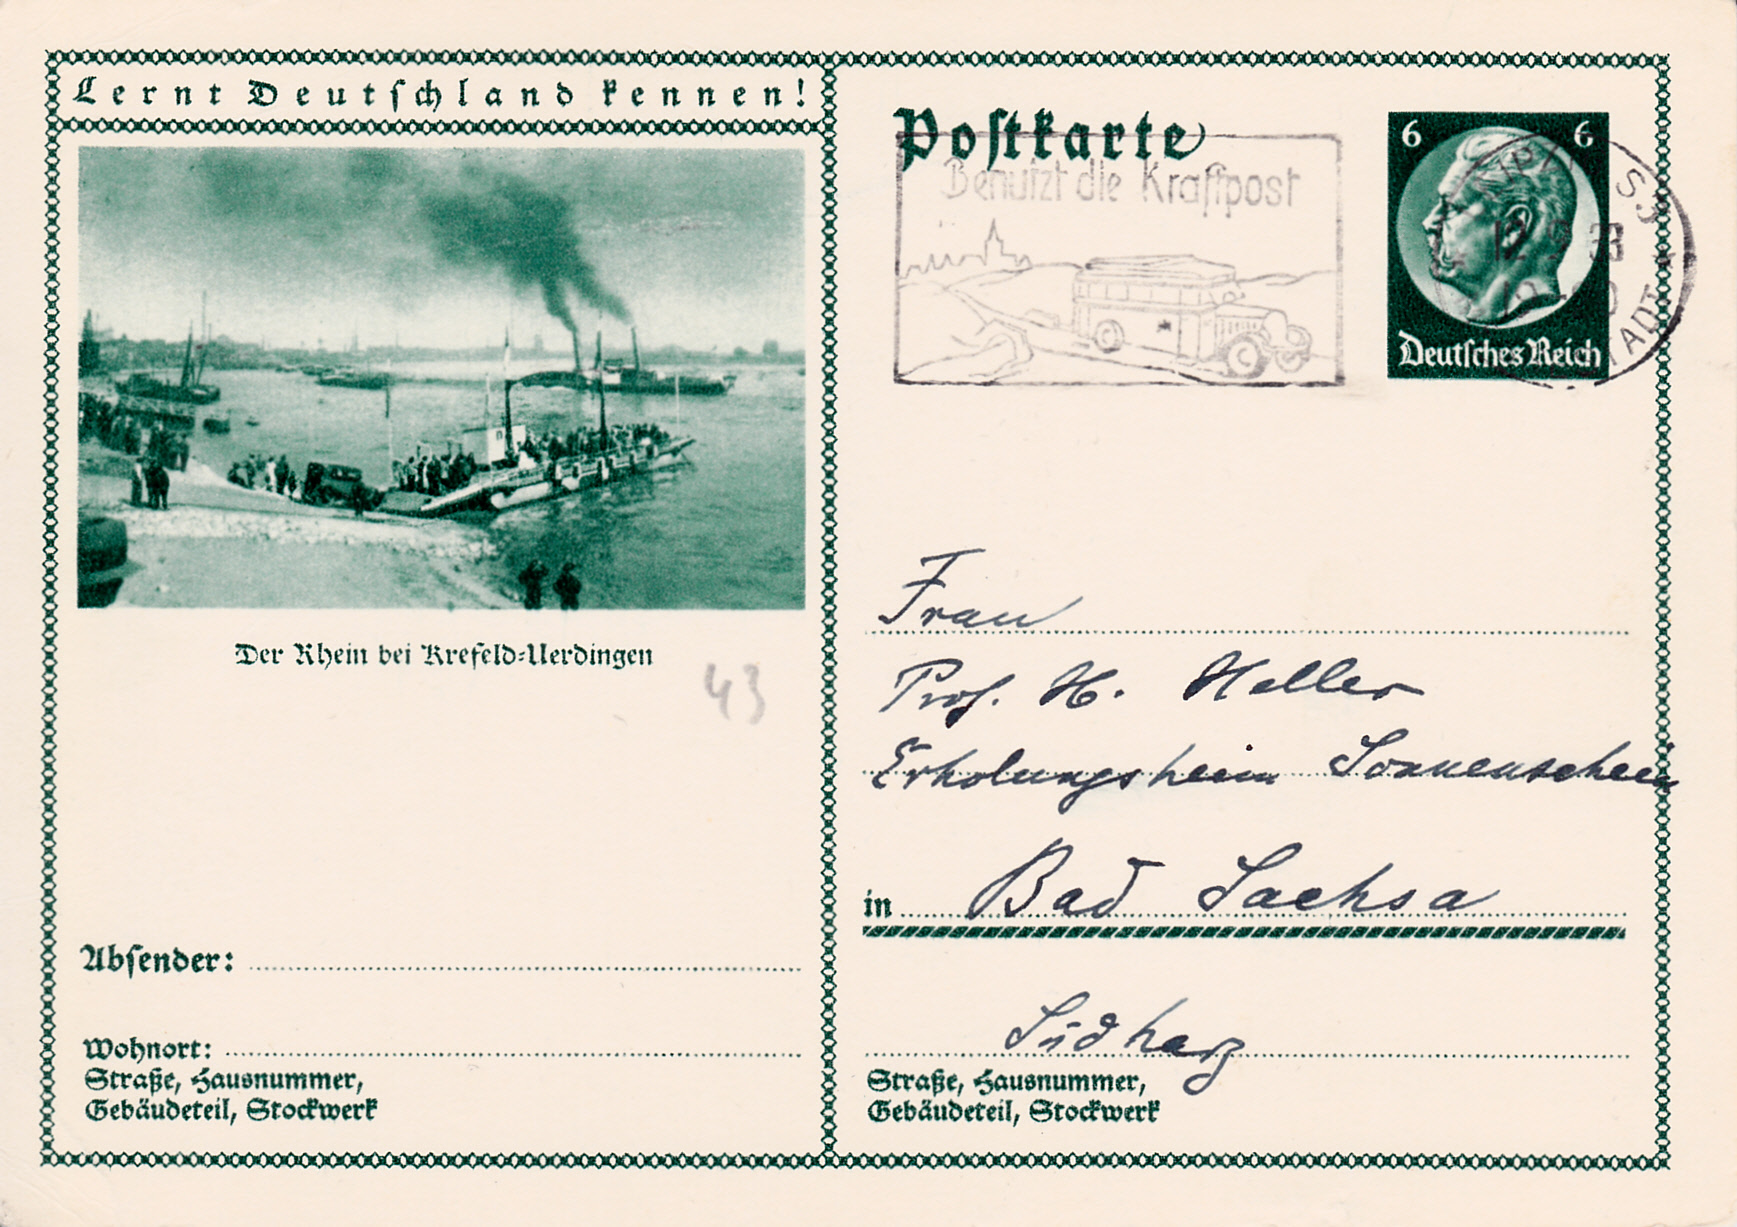 Lernt Deutschland kennen!
Der Rhein bei Krefeld-Uerdingen
43
Absender:
Wohnort:
Straße, Hausnummer,
Gebäudeteil, Stockwerk
Postkarte
Benutzt die Kraftpost
6 6
Deutsches Reich
Frau
Prof. H. Heller
Erholungsheim Sonnenschein
in Bad Sachsa
Südharz
Straße, Hausnummer,
Gebäudeteil, Stockwerk